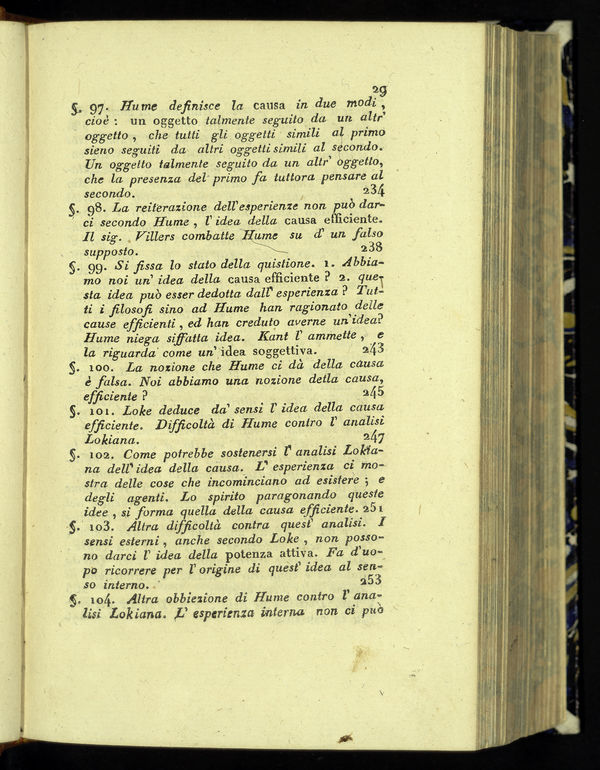 29
§. 97. Hume definisce la causa in due modi,
cioè: un oggetto talmente seguito da un altr'
oggetto, che tutti gli oggetti simili al primo
sieno seguiti da altri oggetti simili al secondo.
Un oggetto talmente seguito da un altr' oggetto,
che la presenza del primo fa tuttora pensare al
secondo. 234
§. 98. La reiterazione dell'esperienze non può dar-
ci secondo Hume, l'idea della causa efficiente.
Il sig. Villers combatte Hume su d'un falso
supposto. 238
§. 99. Si fissa lo stato della quistione. 1. Abbia-
mo noi un'idea della causa efficiente? 2. que-
sta idea può esser dedotta dall'esperienza? Tut-
ti i filosofi sino ad Hume han ragionato delle
cause efficienti, ed han creduto averne un'idea?
Hume niega siffatta idea. Kant l'ammette, e
la riguarda come un'idea soggettiva. 243
§. 100. La nozione che Hume ci dà della causa
è falsa. Noi abbiamo una nozione della causa,
efficiente? 245
§. 101. Loke deduce da' sensi l'idea della causa
efficiente. Difficoltà di Hume contro l'analisi
Lokiana. 247
§. 102. Come potrebbe sostenersi l'analisi Lokia-
na dell'idea della causa. L'esperienza ci mo-
stra delle cose che incominciano ad esistere; e
degli agenti. Lo spirito paragonando queste
idee, si forma quella della causa efficiente. 251
§. 103. Altra difficoltà contra quest'analisi. I
sensi esterni, anche secondo Loke, non posso-
no darci l'idea della potenza attiva. Fa d'uo-
po ricorrere per l'origine di quest'idea al sen-
so interno. 253
§. 104. Altra obbiezione di Hume contro l'ana-
lisi Lokiana. L'esperienza interna non ci può